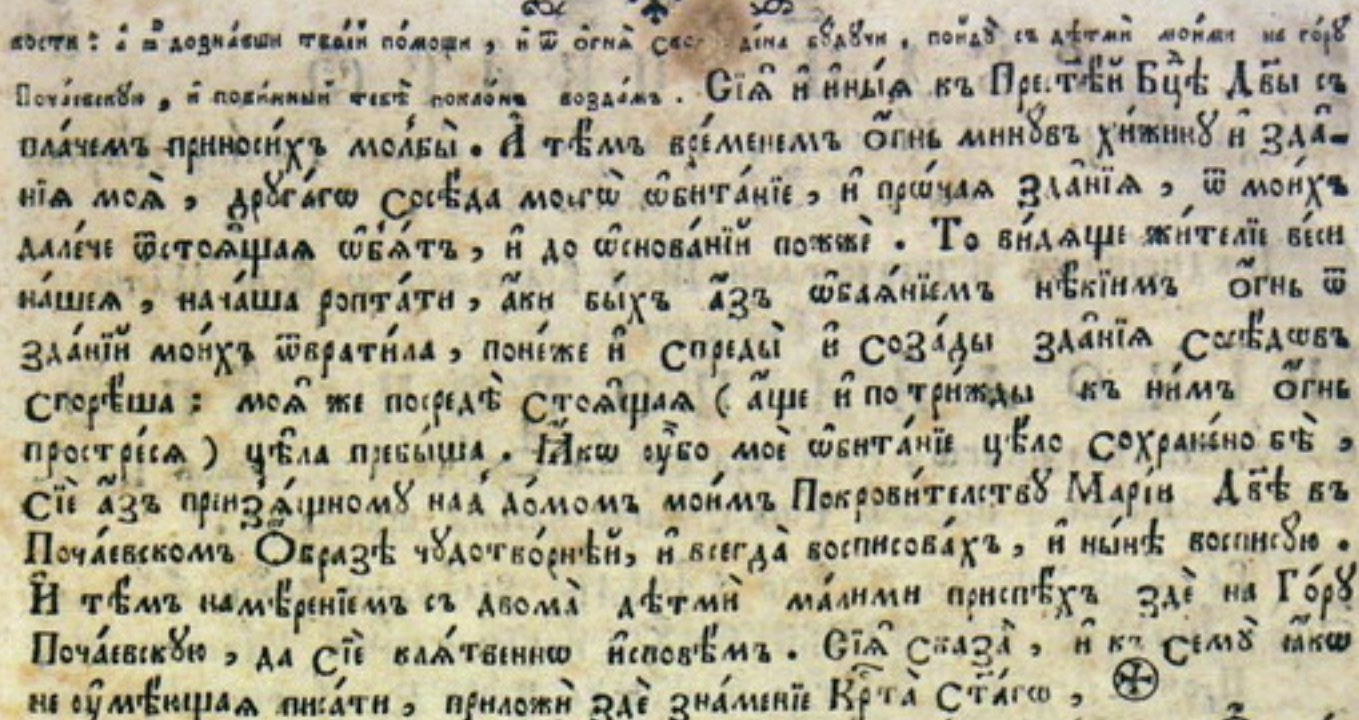 вости: а҆ ѿ дозна́вши твоѐй по́мощи, и҆ ѿ ѻ҆гнѧ̀ бꙋ́дꙋчи, пойдꙋ̀ съ дѣтмѝ мои́ми на го́рꙋ
Поча́евскꙋю, и҆ пови́нный тебѣ̀ покло́нъ возда́мъ. Сїѧ̑ и҆ и҆ны́ѧ къ Прест҃ѣ́й Бц҃ѣ Дв҃ы съ
пла́чемъ приноси́хъ молбы̀. А҆ тѣ́мъ вре́менемъ ѻ҆́гнь минꙋ́въ хи́жинꙋ и҆ зда́-
нїѧ моѧ̀, дрꙋга́гѡ Сосѣ́да моегѡ̀ ѡ҆бита́нїе, и҆ прѡ́чаѧ Зда̑нїѧ, ѿ мои́хъ
дале́че ѿстоѧ̑щаѧ ѡ҆б̾ѧ́тъ, и҆ до ѡ҆снова́нїй пожжѐ. То ви́дѧще жи́телїе ве́си
на́шеѧ, нача́ша ропта́ти, а҆́ки бы́хъ а҆́зъ ѡ҆баѧ́нїемъ нѣ́кїимъ ѻ҆́гнь ѿ
Зда́нїй мои́хъ ѿврати́ла, поне́же и҆ Спредꙋ̀ и҆ Созади́ Зда̑нїѧ Сосѣ́дѡвъ
Сгорѣ́ша: моѧ̑ же посредѣ̀ Стоѧ̑щаѧ (а҆́ще и҆ по три́жды къ ни́мъ ѻ҆́гнь
простре́сѧ) цѣ̑ла пребы́ша. Ꙗ҆́кѡ ᲂу҆́бо моѐ ѡ҆бита́нїе цѣ́ло Сохране́но бѣ̀,
Сїѐ а҆́зъ преизѧ́щномꙋ над̾ до́момъ мои́мъ Покрови́телствꙋ Марі́и Дв҃ѣ въ
Поча́евскомъ Ѻ҆́бразѣ чꙋдотво́рнѣй, и҆ всегда̀ восписова́хъ, и҆ ны́нѣ восписꙋ́ю.
И҆ тѣ́мъ намѣ́ренїемъ съ двома̀ дѣтмѝ ма́лими приспѣ́хъ здѐ на Го́рꙋ
Поча́евскꙋю, да Сїѐ клѧ́твеннѡ и҆сповѣ́мъ. Сїѧ̑ Сказа̀, и҆ къ Семꙋ̀ ꙗ҆́кѡ
не ᲂу҆мѣ́ющаѧ писа́ти, приложѝ здѐ зна́менїе Крⷭ҇та̀ Ст҃а́гѡ,